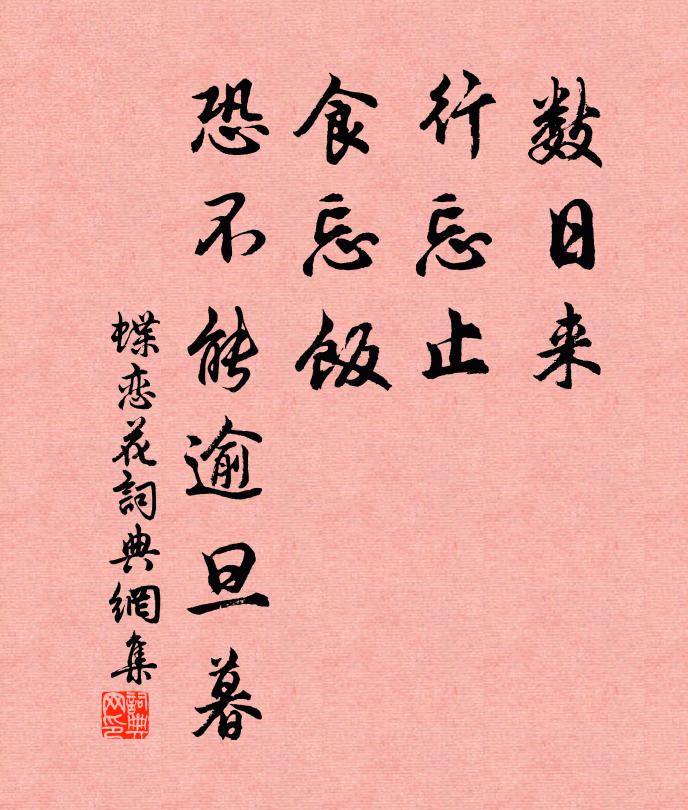 数日来
行忘止
食忘饭
恐不能逾旦暮
蝶恋花詞典網集
詞典网印